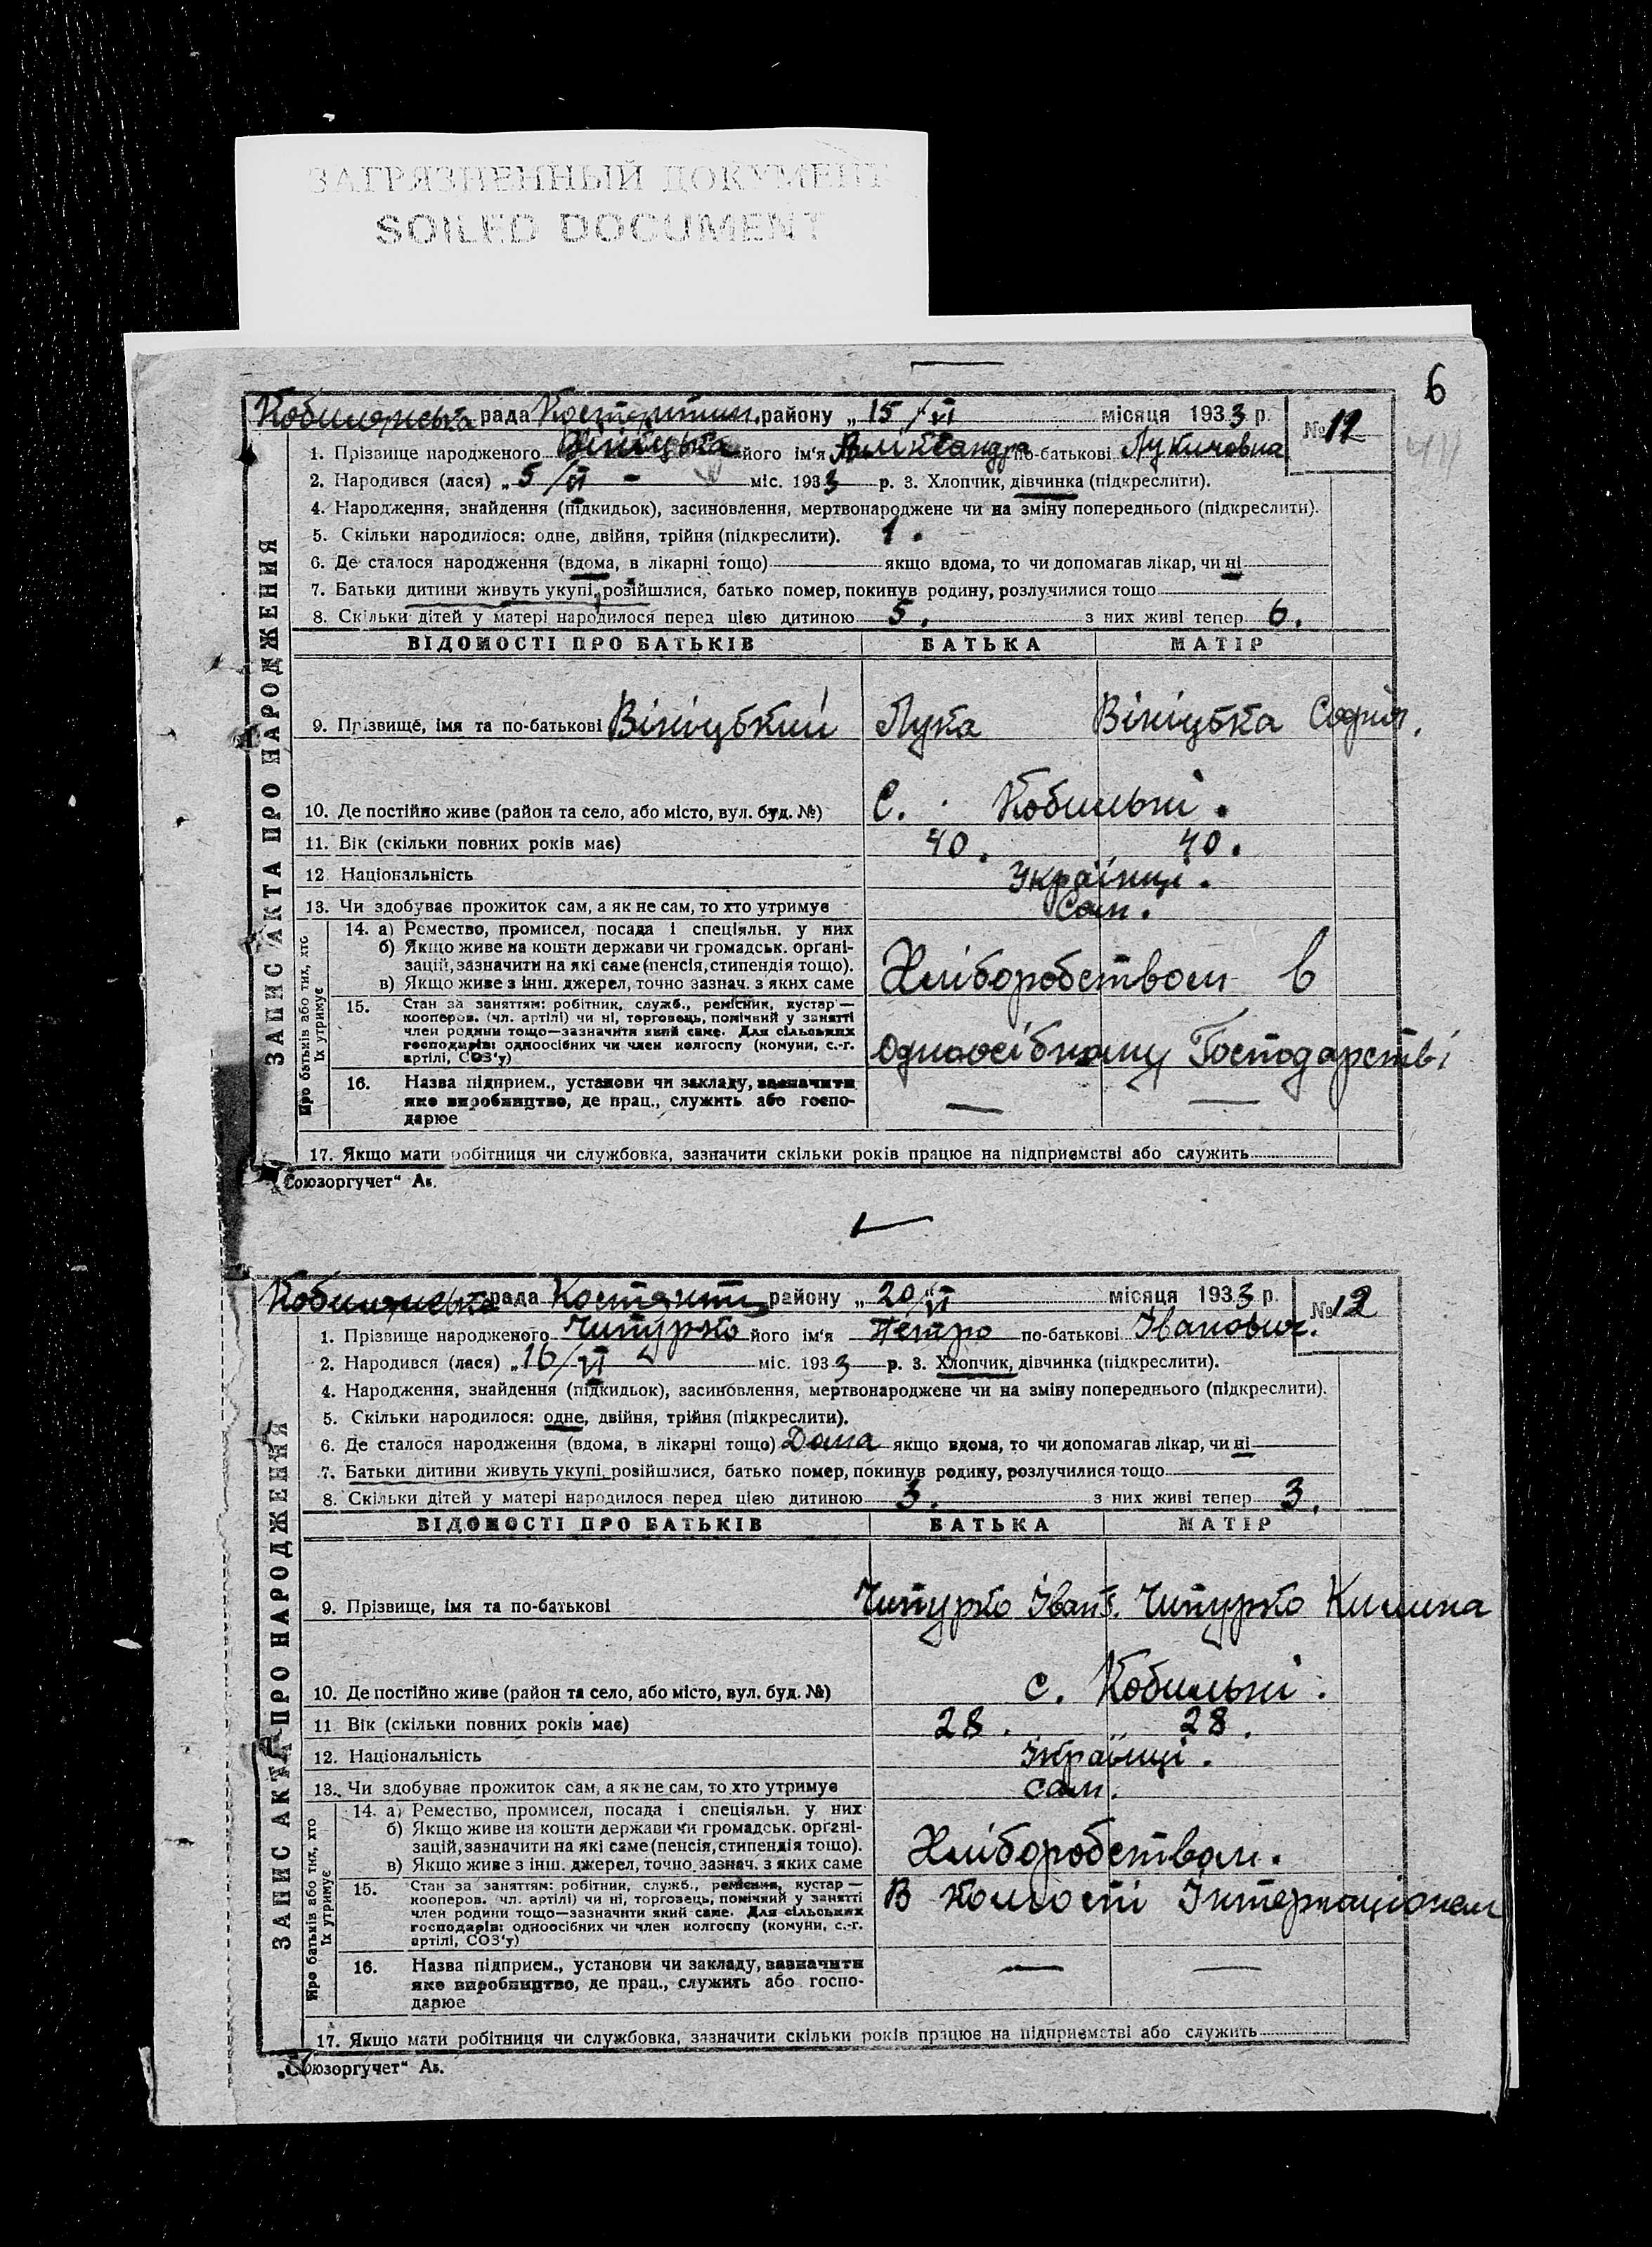 ЗАГРЯЗНЕННЫЙ ДОКУМЕНТ
SOILED DOCUMENT
6
Кобилянська рада Костянтин. району „15/VI місяця 1933 р. №
1. Прізвище народженого Вініцька його ім'я Аліксандра по-батькові Лукичовна
2. Народився (лася) „5/VI - міс. 1933 р. 3. Хлопчик, дівчинка (підкреслити).
4. Народження, знайдення (підкидьок), засиновлення, мертвонароджене чи на зміну попереднього (підкреслити).
5. Скільки народилося: одне, двійня, трійня (підкреслити). 1.
6. Де сталося народження (вдома, в лікарні тощо) якщо вдома, то чи допомагав лікар, чи ні
7. Батьки дитини живуть укупі, розійшлися, батько помер, покинув родину, розлучилися тощо
8. Скільки дітей у матері народилося перед цією дитиною 5. з них живі тепер 6.
ВІДОМОСТІ ПРО БАТЬКІВ БАТЬКА МАТІР
9. Прізвище, імя та по-батькові Вініцький Лука Вініцька Софія.
10. Де постійно живе (район та село, або місто, вул. буд. №) С. Кобильні.
11. Вік (скільки повних років має) 40. 40.
12. Національність Українці.
13. Чи здобуває прожиток сам, а як не сам, то хто утримує Сам.
14. а) Ремество, промисел, посада і спеціяльн. у них
б) Якщо живе на кошти держави чи громадськ. органі-
зацій, зазначити на які саме (пенсія, стипендія тощо).
в) Якщо живе з інш. джерел, точно зазнач. з яких саме
Хліборобством в
15. Стан за заняттям: робітник, служб., ремісник, кустар —
кооперов. (чл. артілі) чи ні, торговець, помічний у занятті
член родини тощо—зазначити який саме. Для сільських
господарів: одноосібних чи член колгоспу (комуни, с.-г.
артілі, СОЗ'у)
одноосібному Господарстві
16. Назва підприєм., установи чи закладу, зазначити
яке виробництво, де прац., служить або госпо-
дарює
— —
17. Якщо мати робітниця чи службовка, зазначити скільки років працює на підприємстві або служить
ЗАПИС АКТА ПРО НАРОДЖЕННЯ
Про батьків або тих, хто
їх утримує
„Союзоргучет“ Ак.
Кобилянська рада Костянтин району „20/VI місяця 1933 р. №12
1. Прізвище народженого Чипурко його ім'я Петро по-батькові Іванович.
2. Народився (лася) „16/VI міс. 1933 р. 3. Хлопчик, дівчинка (підкреслити).
4. Народження, знайдення (підкидьок), засиновлення, мертвонароджене чи на зміну попереднього (підкреслити).
5. Скільки народилося: одне, двійня, трійня (підкреслити).
6. Де сталося народження (вдома, в лікарні тощо) Дома якщо вдома, то чи допомагав лікар, чи ні
7. Батьки дитини живуть укупі, розійшлися, батько помер, покинув родину, розлучилися тощо
8. Скільки дітей у матері народилося перед цією дитиною 3. з них живі тепер 3.
ВІДОМОСТІ ПРО БАТЬКІВ БАТЬКА МАТІР
9. Прізвище, імя та по-батькові Чипурко Іван. Чипурко Килина
10. Де постійно живе (район та село, або місто, вул. буд. №) с. Кобильні.
11 Вік (скільки повних років має) 28. 28.
12. Національність Українці.
13. Чи здобуває прожиток сам, а як не сам, то хто утримує сам.
14. а) Ремество, промисел, посада і спеціяльн. у них
б) Якщо живе на кошти держави чи громадськ. органі-
зацій, зазначити на які саме (пенсія, стипендія тощо).
в) Якщо живе з інш. джерел, точно зазнач. з яких саме
Хліборобством.
15. Стан за заняттям: робітник, служб., ремісник, кустар —
кооперов. (чл. артілі) чи ні, торговець, помічний у занятті
член родини тощо—зазначити який саме. Для сільських
господарів: одноосібних чи член колгоспу (комуни, с.-г.
артілі, СОЗ'у)
В Інтернаціонал
16. Назва підприєм., установи чи закладу, зазначити
яке виробництво, де прац., служить або госпо-
дарює
— —
17. Якщо мати робітниця чи службовка, зазначити скільки років працює на підприємстві або служить
ЗАПИС АКТА ПРО НАРОДЖЕННЯ
Про батьків або тих, хто
їх утримує
„Союзоргучет“ Ак.